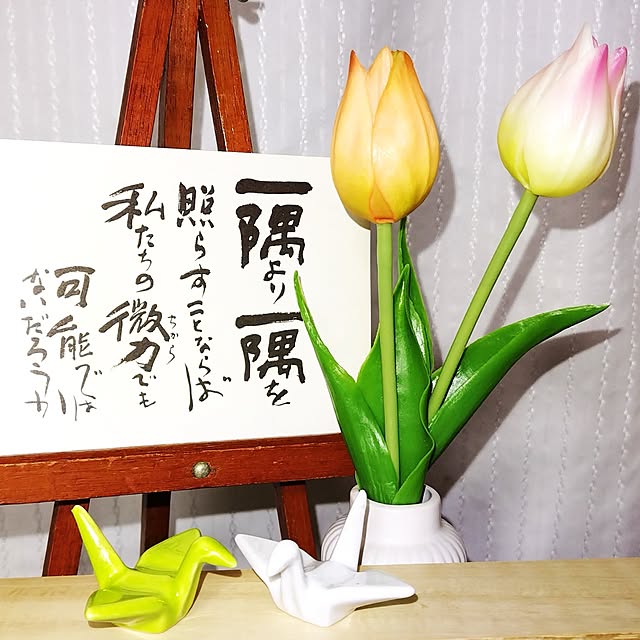 一隅より一隅を
照らすことならば
私たちの微力でも
ちから
可能では
ないだろうか